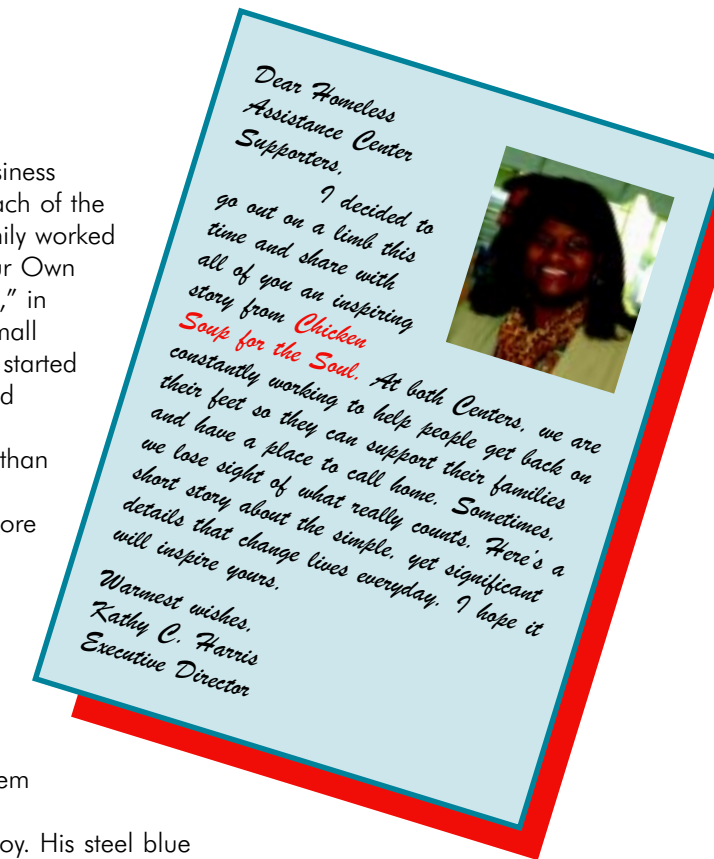 siness
ach of the
mily worked
ur Own
," in
mall
started
d
than
ore
em
oy. His steel blue
Dear Homeless
Assistance Center
Supporters,
I decided to
go out on a limb this
time and share with
all of you an inspiring
story from Chicken
Soup for the Soul. At both Centers, we are
constantly working to help people get back on
their feet so they can support their families
and have a place to call home. Sometimes,
we lose sight of what really counts. Here's a
short story about the simple, yet significant
details that change lives everyday. I hope it
will inspire yours.
Warmest wishes,
Kathy C. Harris
Executive Director